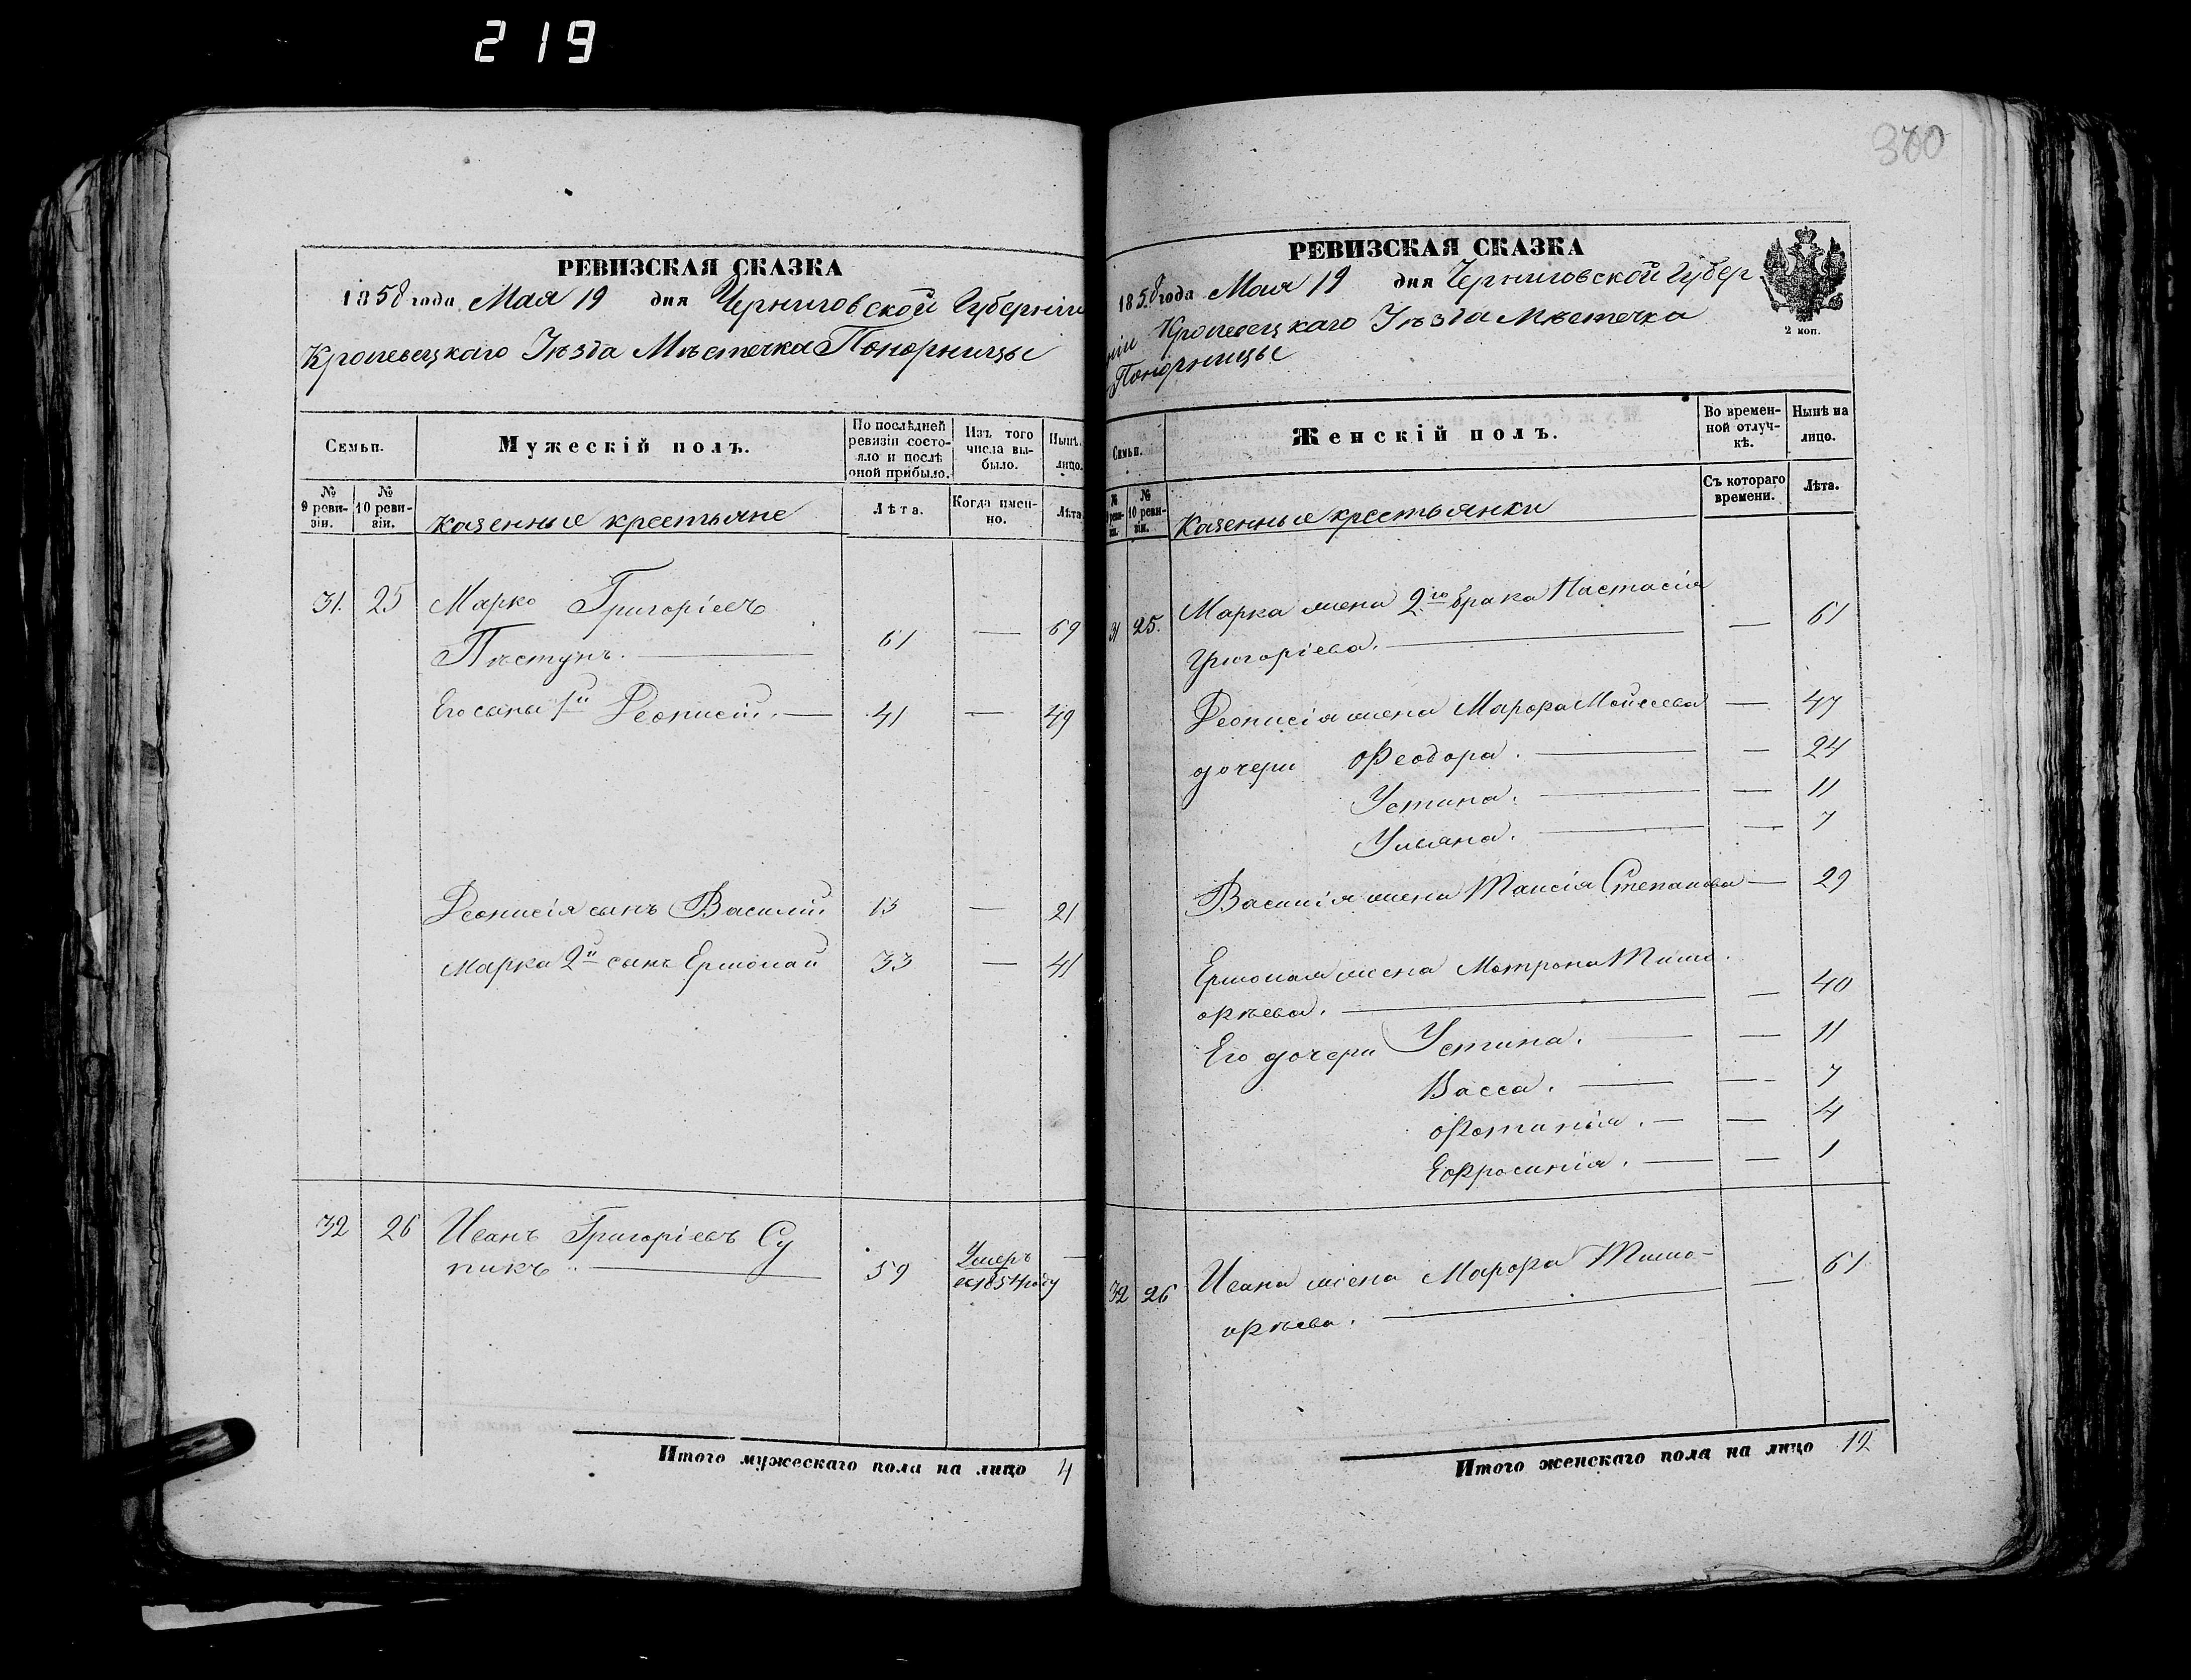 219
РЕВИЗСКАЯ СКАЗКА
1858 года Мая 19 дня Черниговской Губерніи
Кролевецкаго Уѣзда Мѣстечка Понорницы
Семьи.
Мужескій полъ.
По послѣдней ревизіи состояло и послѣ оной прибыло.
Изъ того числа выбыло.
Нынѣ лицо.
№ 9 ревизіи.
№ 10 ревизіи.
Казенные крестьяне
Лѣта.
Когда именно.
Лѣта
31. 25 Марко Григоріевъ
Пѣстунъ. 61 — 69
Его сыны 1й Деонисій. — 41 — 49
Деонисія сынъ Василій 13 — 21
Марка 2й сынъ Ермолай 33 — 41
32 26 Иванъ Григоріевъ Су
пикъ 59 Умеръ —
въ 1854 году
Итого мужескаго пола на лицо 4
380
РЕВИЗСКАЯ СКАЗКА
1858 года Мая 19 дня Черниговской Губер
ніи Кролевецкаго Уѣзда Мѣстечка
Понорницы
2 коп.
Семьи.
Женскій полъ.
Во временной отлучкѣ.
Нынѣ на лицо.
№ 9 ревизіи.
№ 10 ревизіи.
Казенные крестьянки
Съ котораго времени.
Лѣта.
31 25. Марка жена 2го брака Настасія
Григоріева. — 61
Деонисія жена Марфа Моисеева — 47
дочери Феодора. — 24
Устина. — 11
Ульяна. — 7
Василія жена Таисія Степанова — 29
Ермолая жена Мотрона Тимо
фѣева. — 40
Его дочери Устина. — 11
Васса. — 7
Фотинія. — 4
Ефросинія. — 1
32 26 Ивана жена Марфа Тимо-
фѣева. — 61
Итого женскаго пола на лицо 12